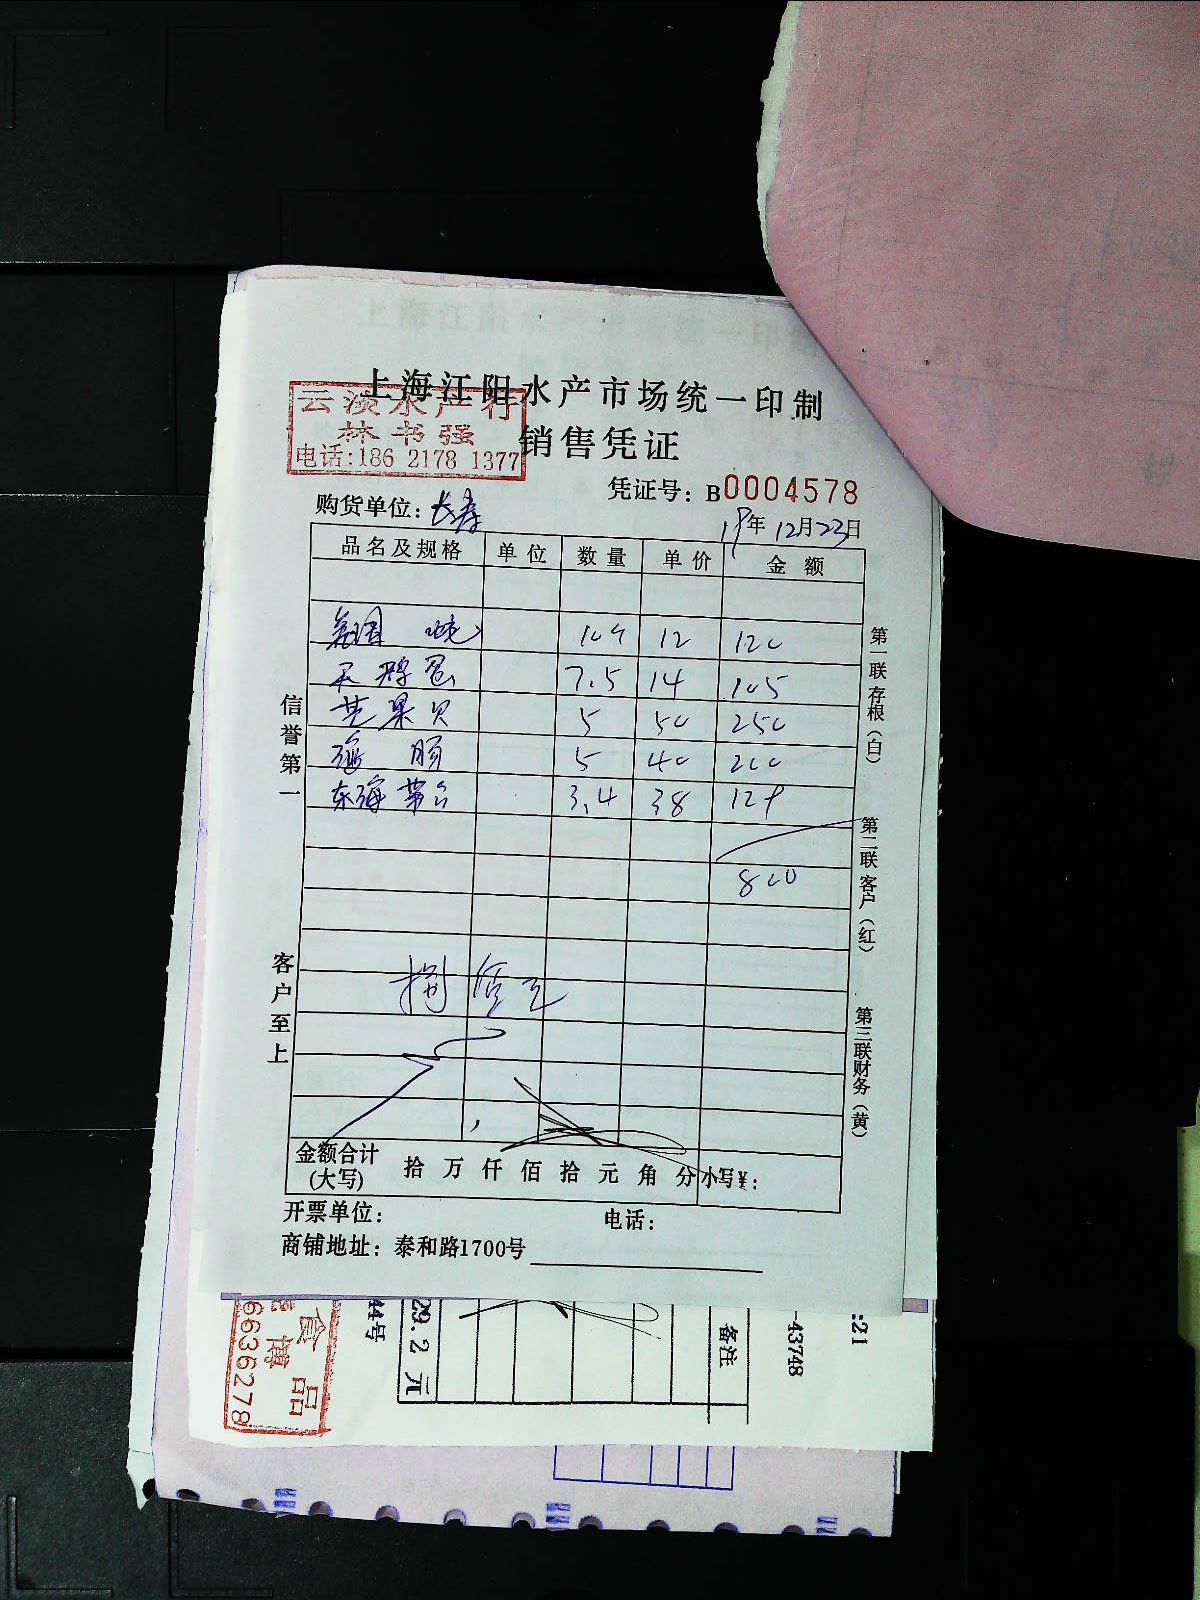 上海江阳水产市场统一印制
云淡水产行
林书强
电话:186 2178 1377
销售凭证
凭证号: B0004578
购货单位: 长寿
19年12月23日
品名及规格 单位 数量 单价 金额
10 12 120
天鹅蛋 7.5 14 105
芒果贝 5 50 250
海肠 5 40 200
东海带 3.4 38 129
800
捌佰元
信誉第一
客户至上
第一联存根(白)
第二联客户(红)
第三联财务(黄)
金额合计(大写) 拾 万 仟 佰 拾 元 角 分 小写¥:
开票单位: 电话:
商铺地址: 泰和路1700号
食品
博
6636278
44号
29.2元
备注
-43748
:21